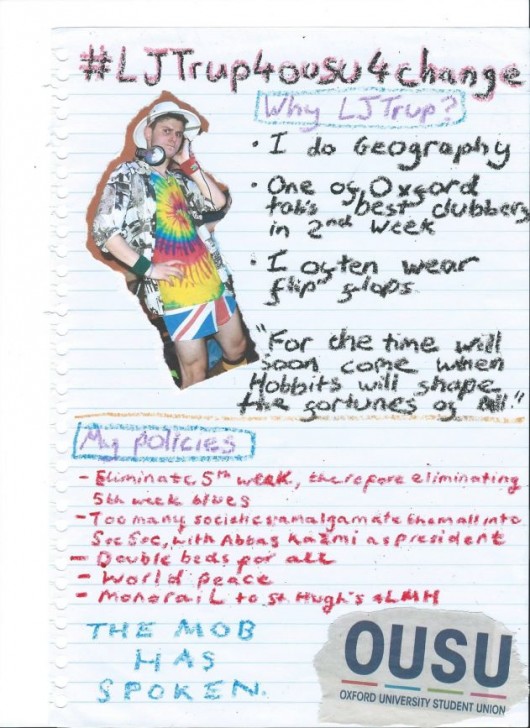 #LJTrup4ousu4change
Why LJTrup?
• I do Geography
• One of Oxford
tab's best clubbers
in 2nd Week
• I often wear
flip flops
"For the time will
soon come when
Hobbits will shape
the fortunes of all."
My policies
- Eliminate 5th week, therefore eliminating
5th week blues
- Too many societies amalgamate them all into
SocSoc, with Abbas Kazmi as president
- Double beds for all
- World peace
- Monorail to St Hugh's & LMH
THE MOB
HAS
SPOKEN.
OUSU
OXFORD UNIVERSITY STUDENT UNION